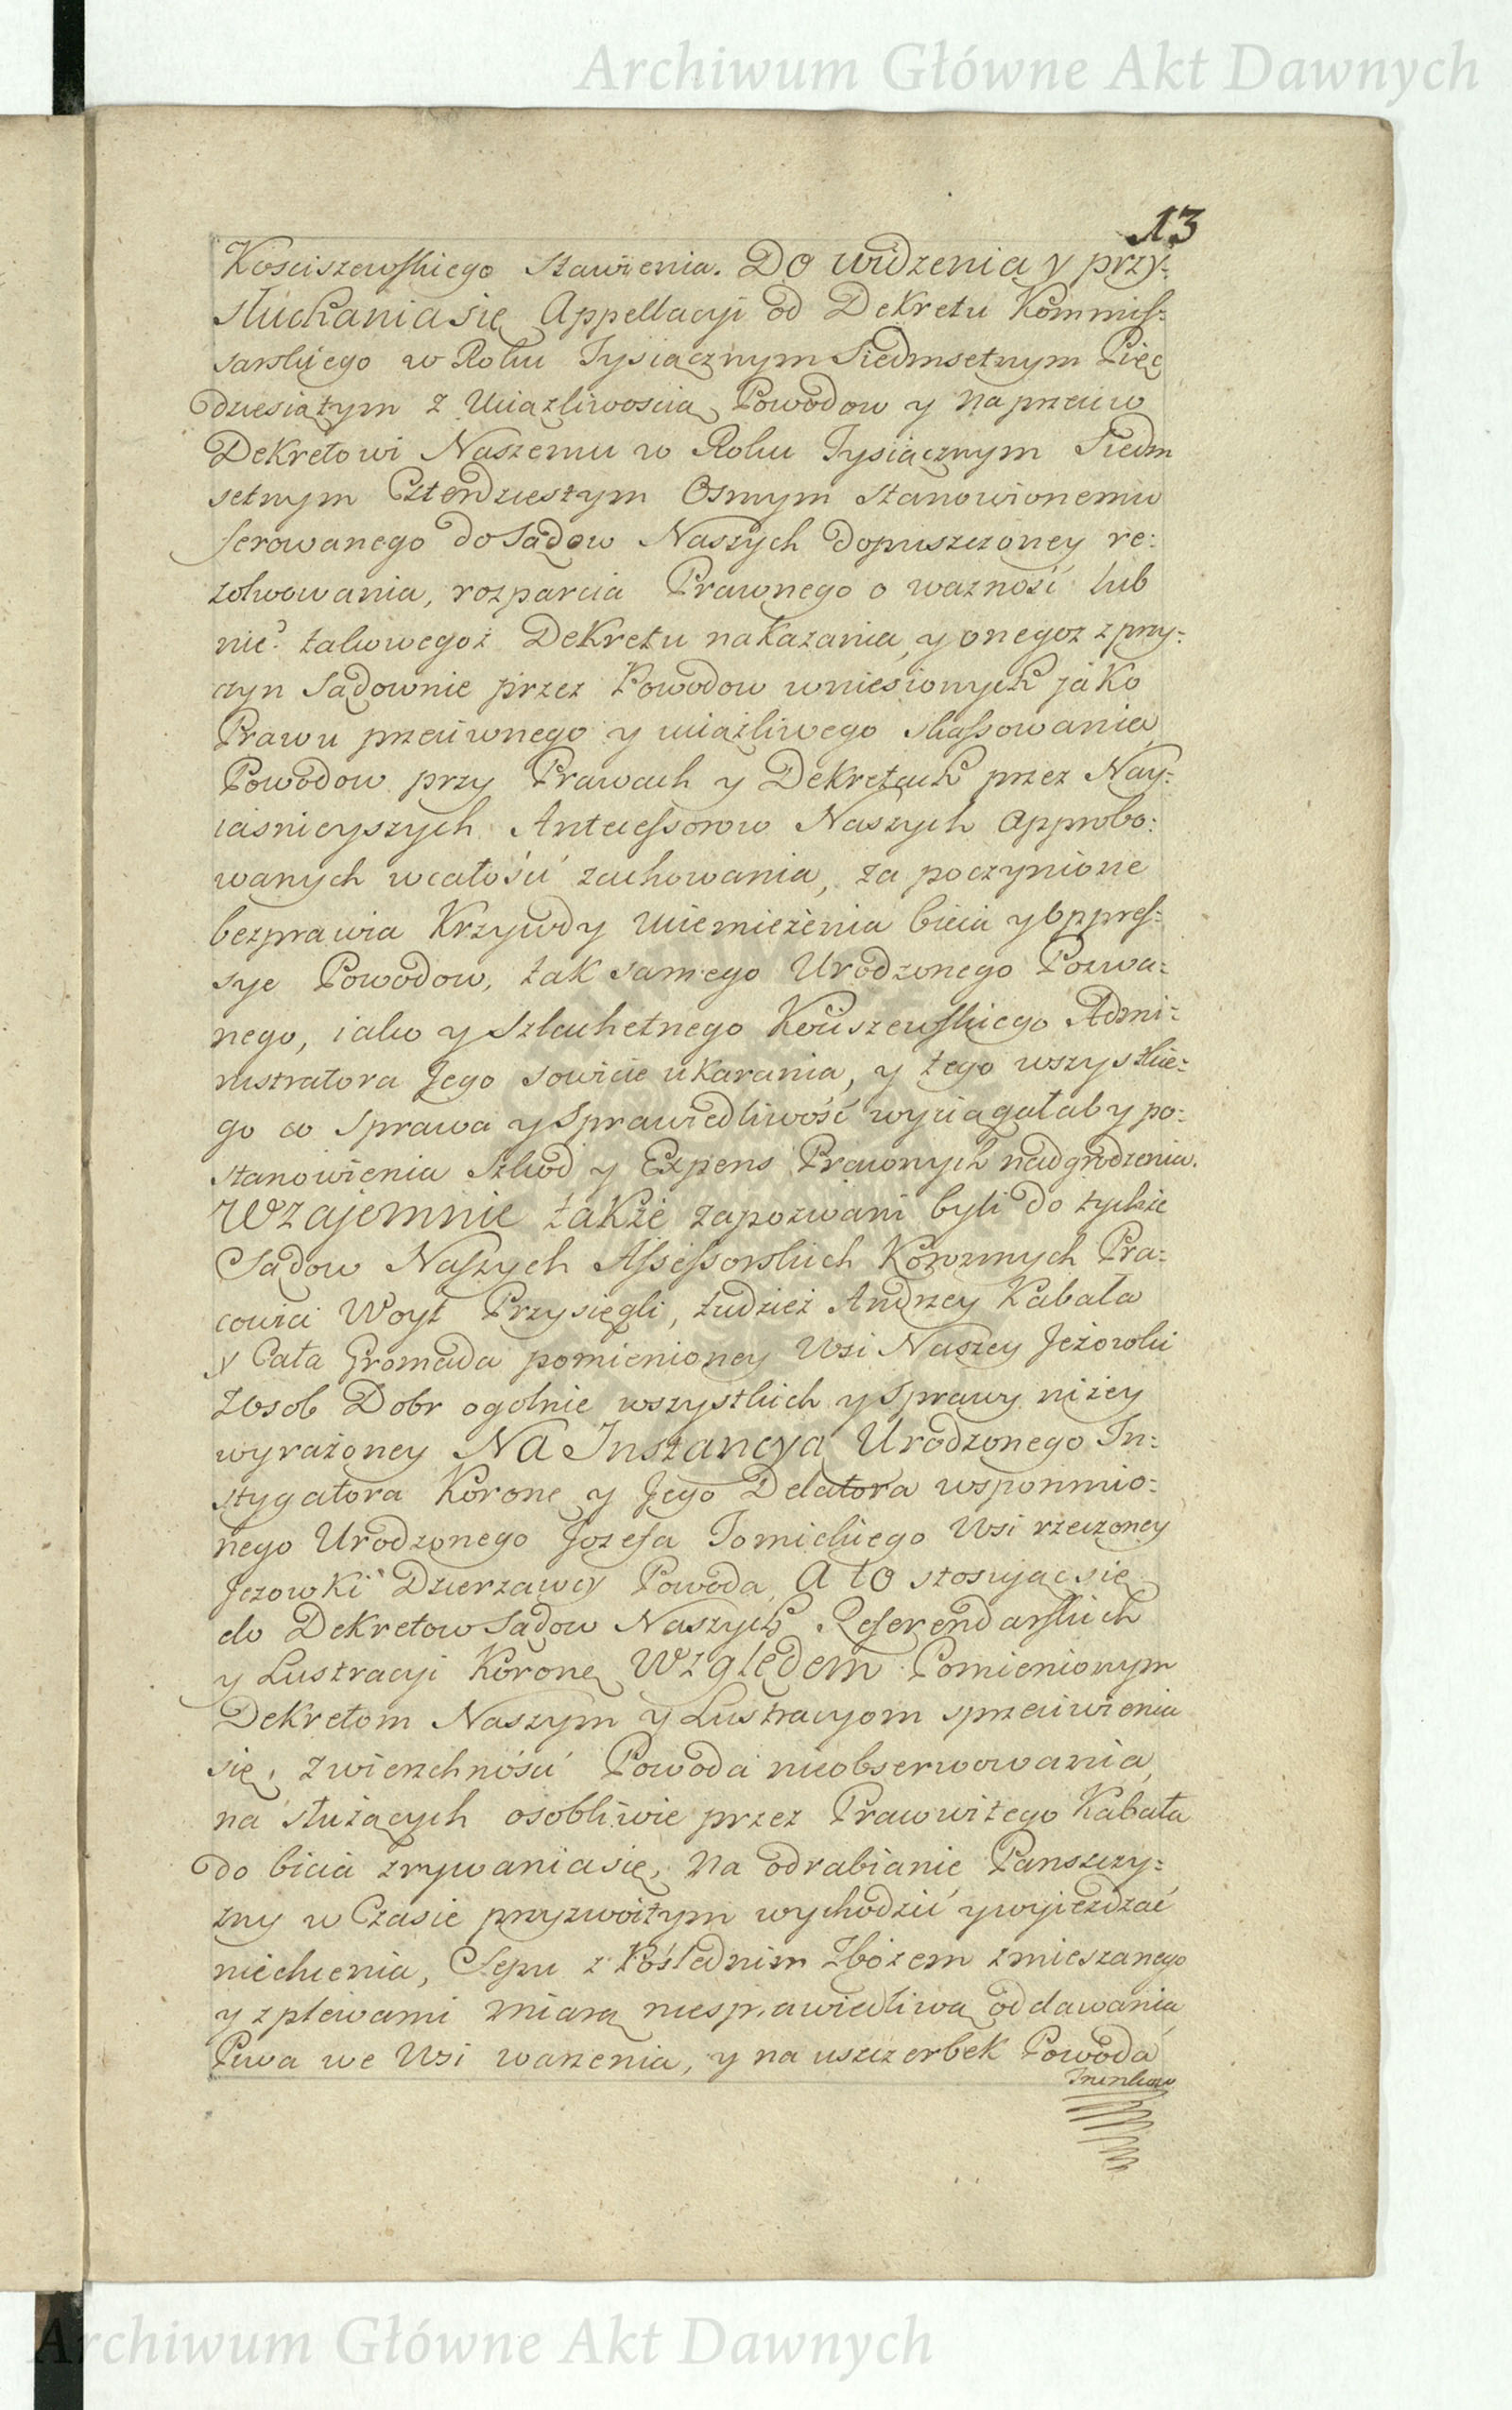 Archiwum Główne Akt Dawnych
13
Kosciszewskiego stawienia. Do widzenia y przy=
słuchania się Appellacyi od Dekretu Kommis=
sarskiego w Roku Tysiącznym Siedmsetnym Pięc
dziesiątym z Uciązliwoscią Powodow y na przeciw
Dekretowi Naszemu w Roku Tysiącznym Siedm
setnym Czterdziestym Osmym stanowionemu
ferowanego do Sądow Naszych dopuszczoney re=
zolwowania, rozparcia Prawnego o wazność lub
nie? takowegoż Dekretu nakazania, y onegoz z przy=
czyn Sądownie przez Powodow wniesionych jako
Prawu przeciwnego y uciążliwego skassowania
Powodow przy Prawach y Dekretach przez Nay=
iasnieyszych Antecessorow Naszych approbo=
wanych wcałości zachowania, za poczynione
bezprawia Krzywdy Uciemiężenia bicia y oppres=
sye Powodow, tak samego Urodzonego Pozwa=
nego, iako y Szlachetnego Kociszewskiego Admi=
nistratora Jego sowicie ukarania, y tego wszystkie=
go co Sprawa y Sprawiedliwość wyciągałaby po=
stanowienia Szkod y Expens Prawnych nadgrodzenia.
Wzajemnie także zapozwani byli do tychże
Sądow Naszych Assessorskich Koronnych Pra=
cowici Woyt Przysięgli, tudzież Andrzey Kabała
y Cała Gromada pomienioney Wsi Naszey Jeżowki
Zosob Dobr ogolnie wszystkich y Sprawy niżey
wyrażoney Na Instancyą Urodzonego In=
stygatora Korone y Jego Delatora wspomnio=
nego Urodzonego Jozefa Tomickiego Wsi rzeczoney
Jezowki Dzierzawcy Powoda, A to stosując się
do Dekretow Sądow Naszych Referendarskich
y Lustracyi Korone Względem Pomienionym
Dekretom Naszym y Lustracyom sprzeciwienia
się, zwierzchności Powoda nieobserwowania,
na służących osobliwie przez Prawowitego Kabała
do bicia zrywania się, Na odrabianie Panszczy=
zny w Czasie przyzwoitym wychodzić y wyjeżdzać
niechcenia, Sepu z Poślednim Zbożem zmieszanego
y z plewami miarą niesprawiedliwą oddawania
Piwa we Wsi warzenia, y na uszczerbek Powoda
Archiwum Główne Akt Dawnych